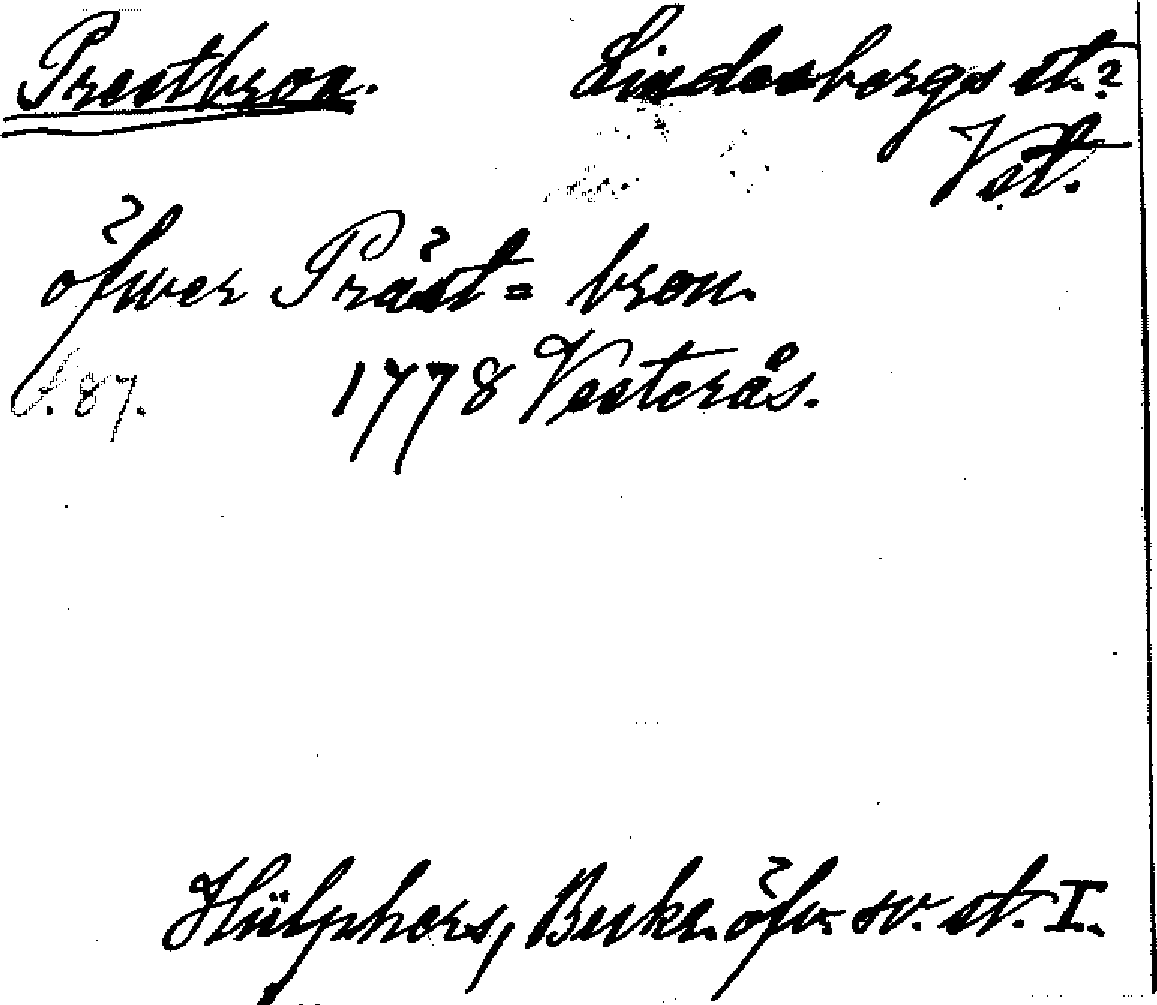 Prestbron. Lindesbergs st.?
Vstl.
öfwer Präst= bron.
S. 87. 1778 Vesterås.
Hülphers, Beskr. öfv. sv. st. I.